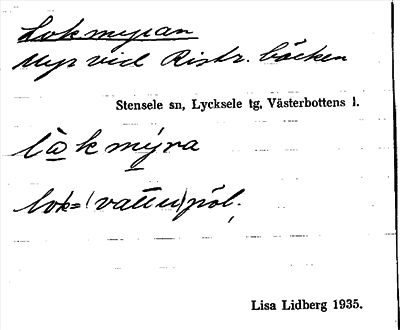 Lokmyran
Myr vid Ristr. bäcken
Stensele sn, Lycksele tg, Västerbottens l.
lå̀k mýra
lok=(vatten)pöl.
Lisa Lidberg 1935.